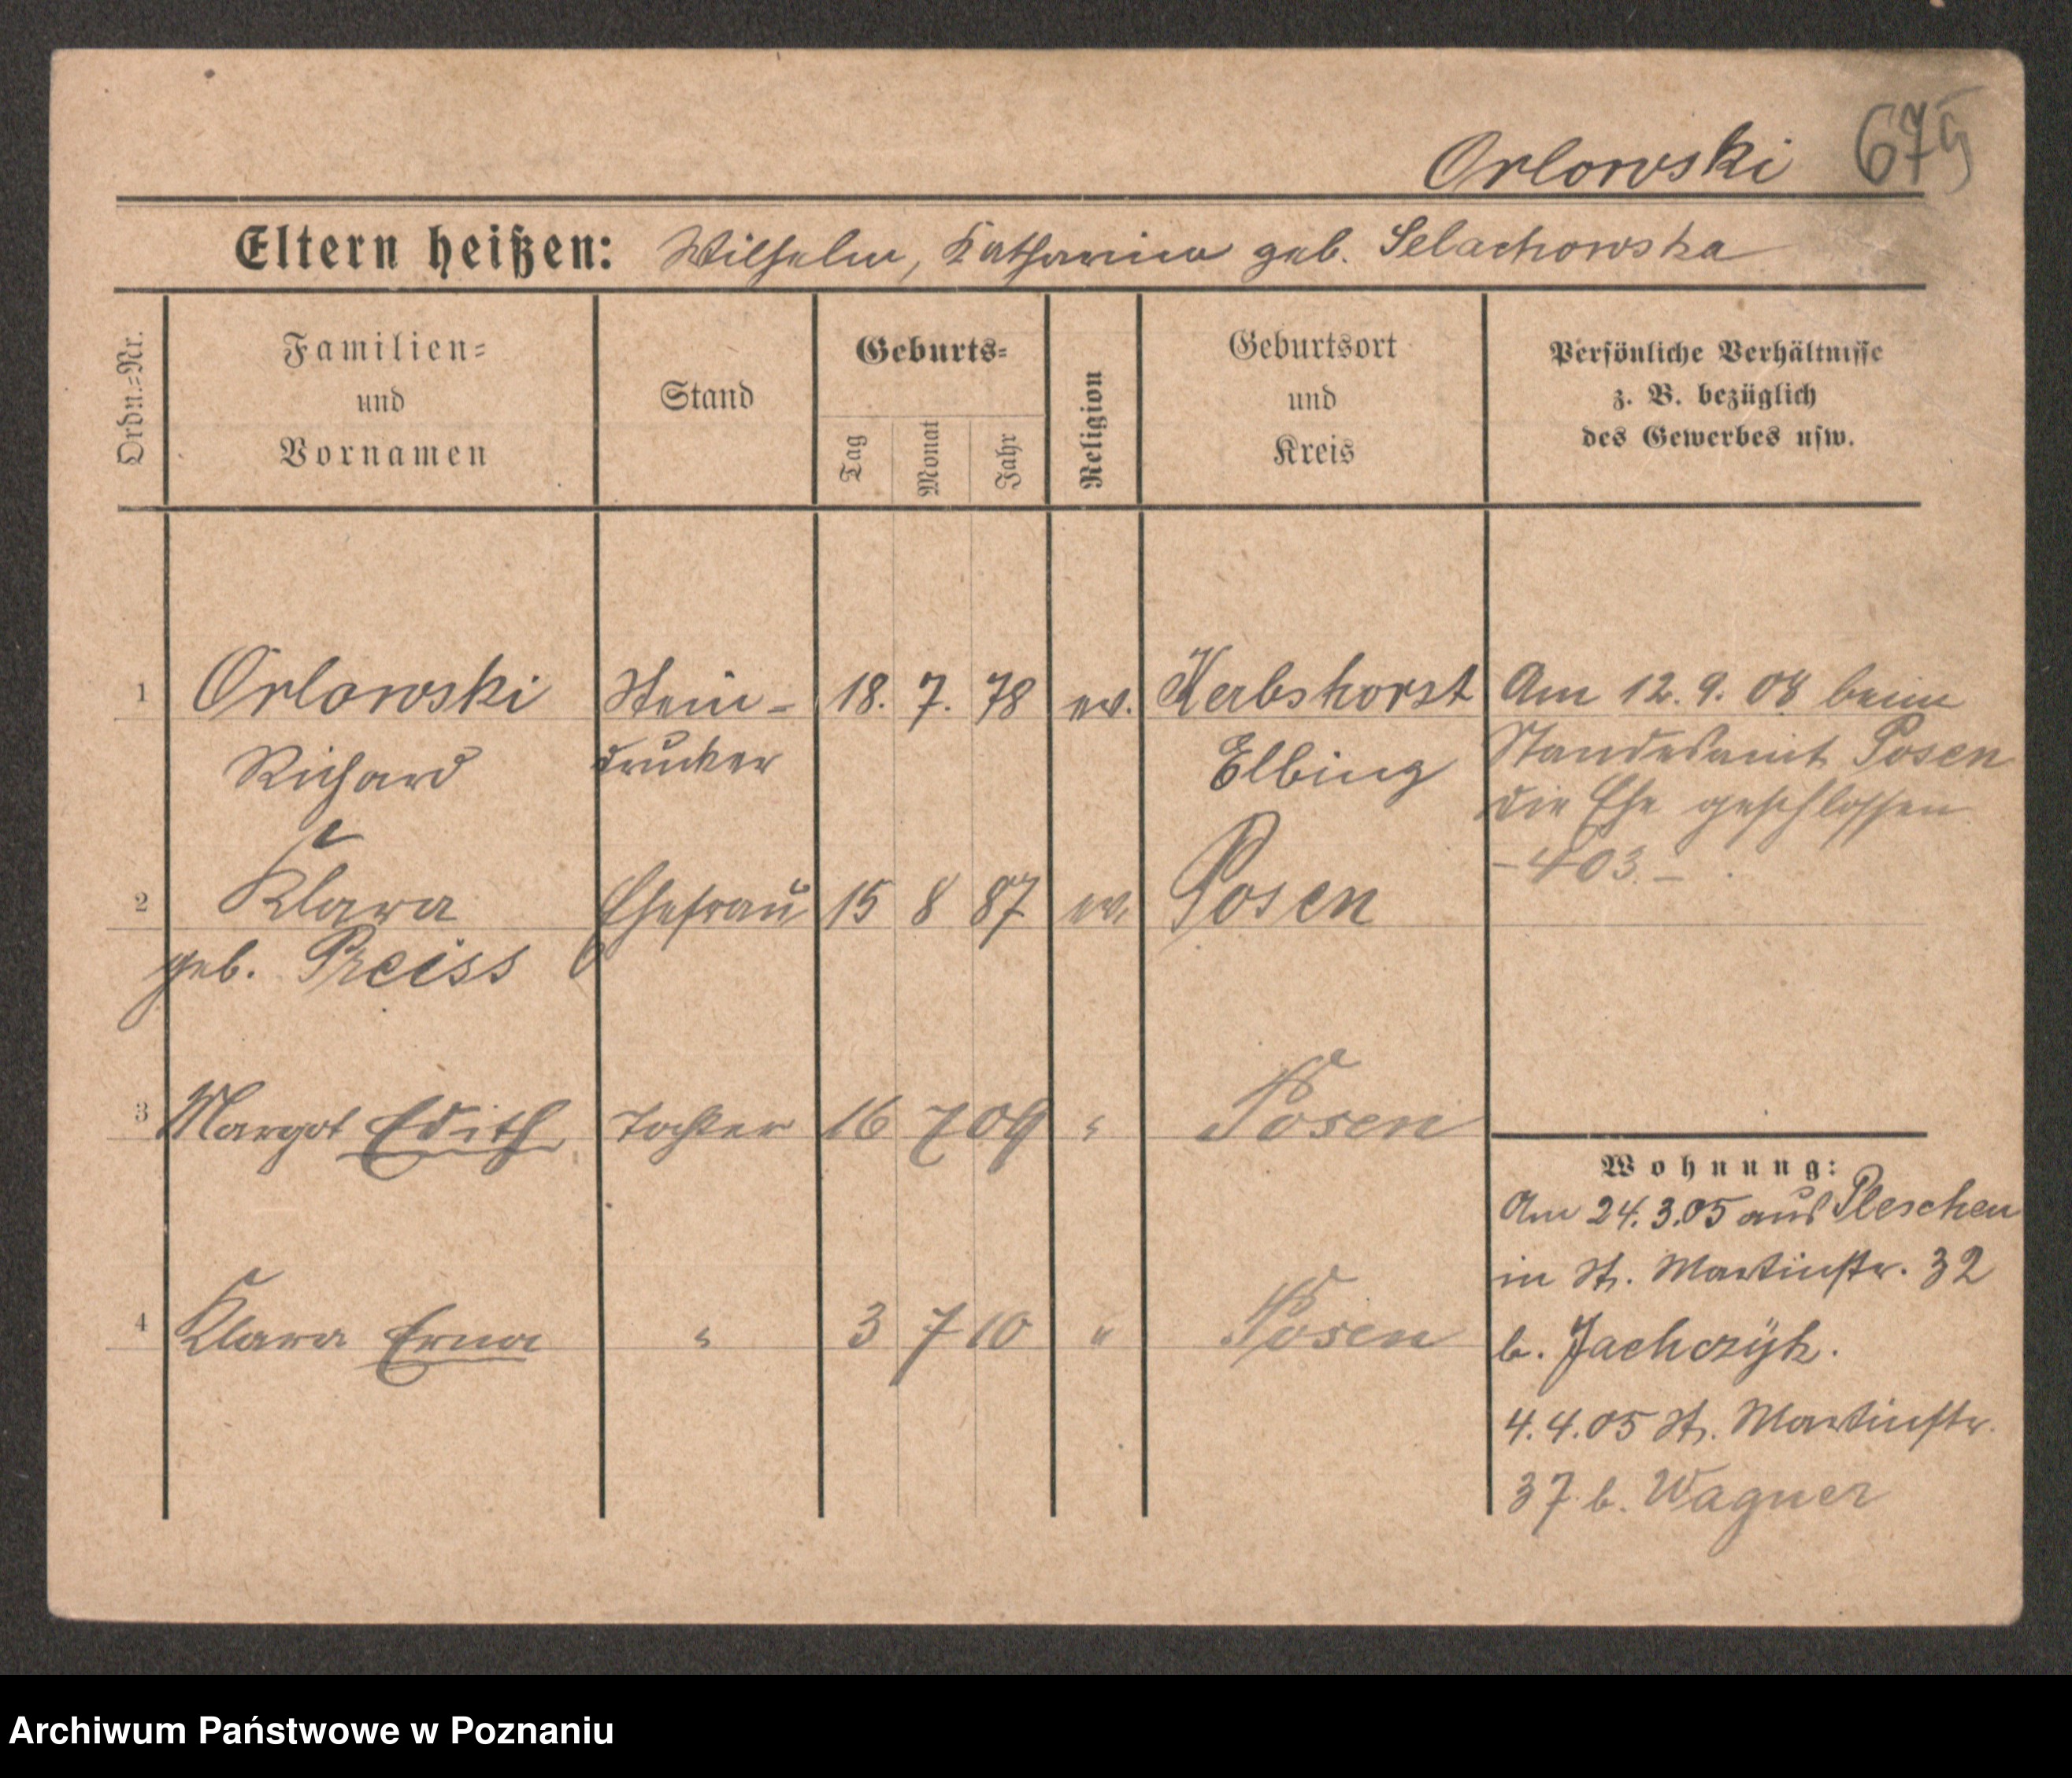 Orlowski 675
Eltern heißen: Wilhelm, Katharina geb. Selachowska
Ordn.=Nr.
Familien=
und
Vornamen
Stand
Geburts=
Tag
Monat
Jahr
Religion
Geburtsort
und
Kreis
Persönliche Verhältnisse
z. B. bezüglich
des Gewerbes usw.
1 Orlowski Stein- 18. 7. 78 ev. Kerbshorst
Richard drucker Elbing
Am 12. 9. 08 beim
Standesamt Posen
die Ehe geschlossen
- 403 -
2 Klara Ehefrau 15 8 87 ev. Posen
geb. Preiss
3 Margot Edith Tochter 16 7 09 " Posen
4 Klara Erna " 3 7 10 " Posen
Wohnung:
Am 24. 3. 05 aus Pleschen
in St. Martinstr. 32
b. Jachczÿk.
4. 4. 05 St. Martinstr.
37 b. Wagner
Archiwum Państwowe w Poznaniu